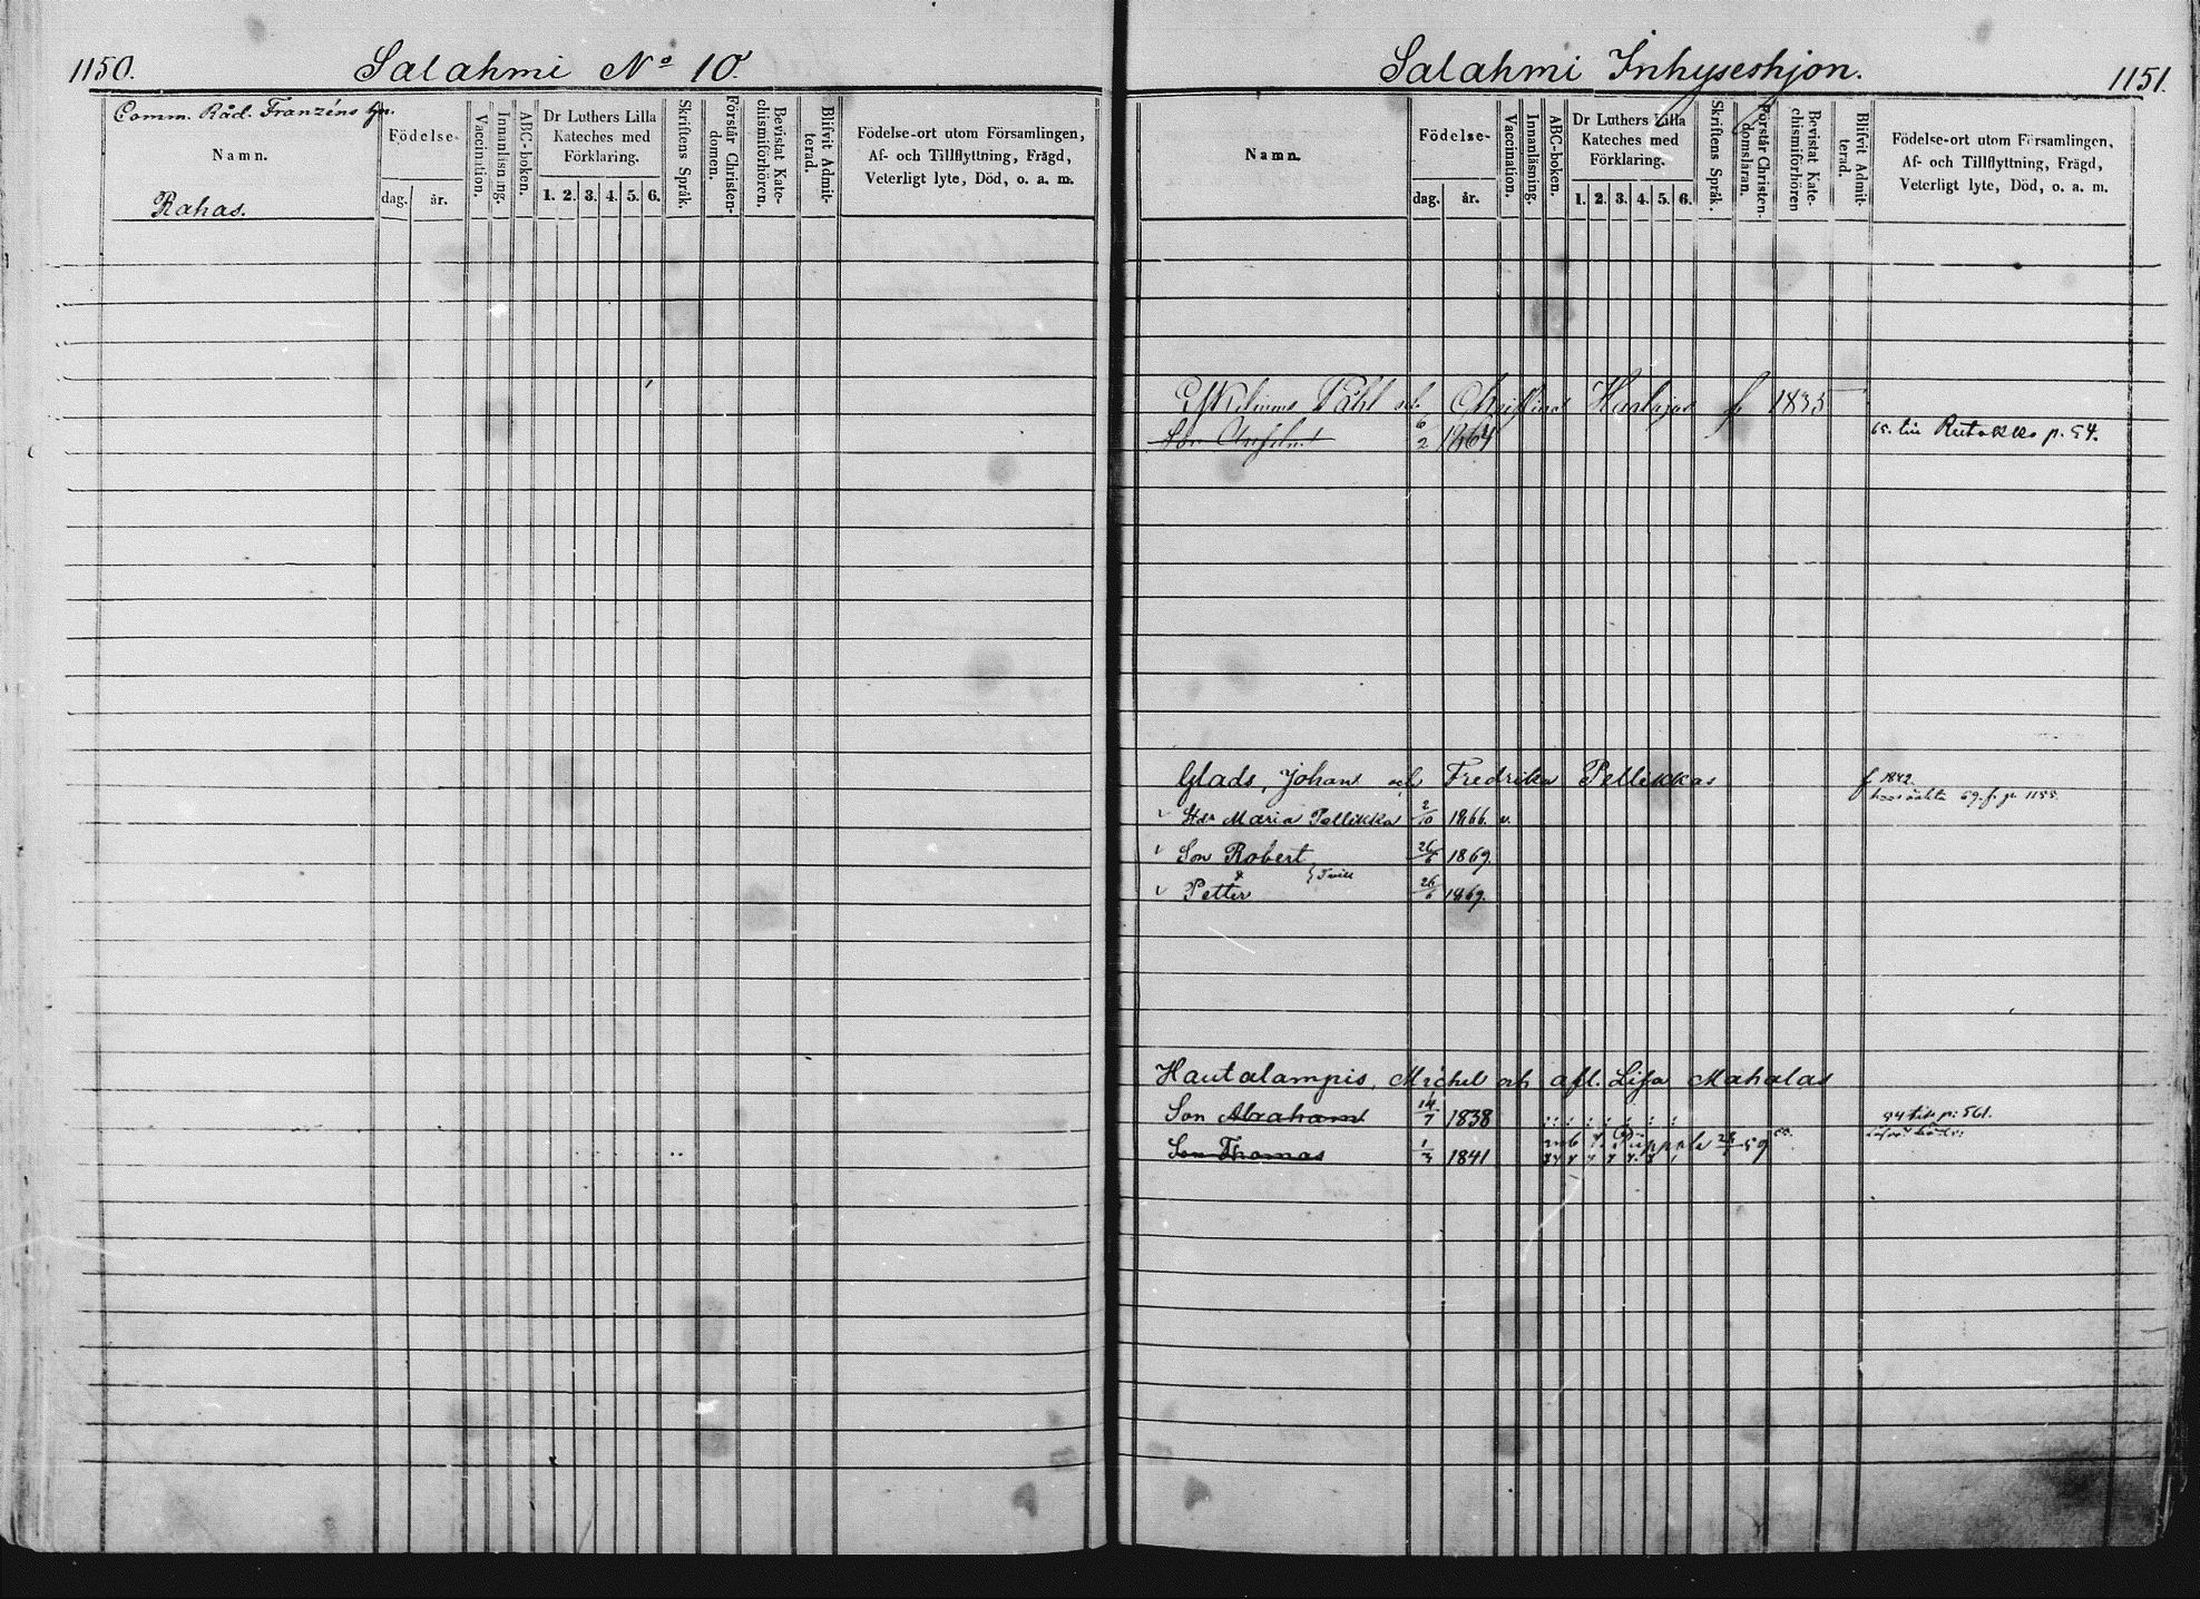 1150.
Salahmi No 10.
Comm. Råd. Franzéns hn.
Namn.
Rahas.
Födelse-
dag.
år.
Vaccination.
Innanläsning.
ABC-boken.
Dr Luthers Lilla
Kateches med
Förklaring.
1. 2. 3. 4. 5. 6.
Skriftens Språk.
Förstår Christen-
domen.
Bevistat Kate-
chismiförhören.
Blifvit Admit-
terad.
Födelse-ort utom Församlingen,
Af- och Tillflyttning, Frägd,
Veterligt lyte, Död, o. a. m.
Salahmi Inhyseshjon.
1151.
Namn.
Födelse-
dag.
år.
Vaccination.
Innanläsning.
ABC-boken.
Dr Luthers Lilla
Kateches med
Förklaring.
1. 2. 3. 4. 5. 6.
Skriftens Språk.
Förstår Christen-
domsläran.
Bevistat Kate-
chismiförhören
Blifvit Admit-
terad.
Födelse-ort utom Församlingen,
Af- och Tillflyttning, Frägd,
Veterligt lyte, Död, o. a. m.
Påhl och Christina f. 1835
6/2 1864 65. till Rutakko p. 54.
Glads, Johan och Fredrika Pellikkas f. 1842.
69. f. p. 1155.
Maria Pellikka 2/10 1866. v.
Son Robert 26/6 1869.
& } Tvill
Petter 26/6 1869.
Hautalampis, Michel och afl. Lisa Mahalas
Son Abraham 14/7 1838 p: 561.
Son Thomas 1/3 1841